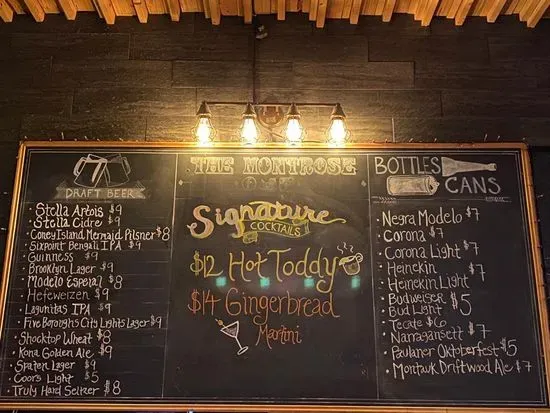 DRAFT BEER
Stella Artois $9
Stella Cidre $9
Coney Island Mermaid Pilsner $8
Sixpoint Bengali IPA $9
Guinness $9
Brooklyn Lager $9
Modelo Especial $8
Hefeweizen $9
Lagunitas IPA $9
Five Boroughs City Lights Lager $9
Shocktop Wheat $8
Kona Golden Ale $9
Spaten Lager $9
Coors Light $5
Truly Hard Seltzer $8
THE MONTROSE
Signature
COCKTAILS
$12 Hot Toddy
$14 Gingerbread
Martini
BOTTLES
& CANS
Negra Modelo $7
Corona $7
Corona Light $7
Heinekin $7
Heinekin Light
Budweiser $5
Bud Light
Tecate $6
Narragansett $7
Paulaner Oktoberfest $5
Montauk Driftwood Ale $7